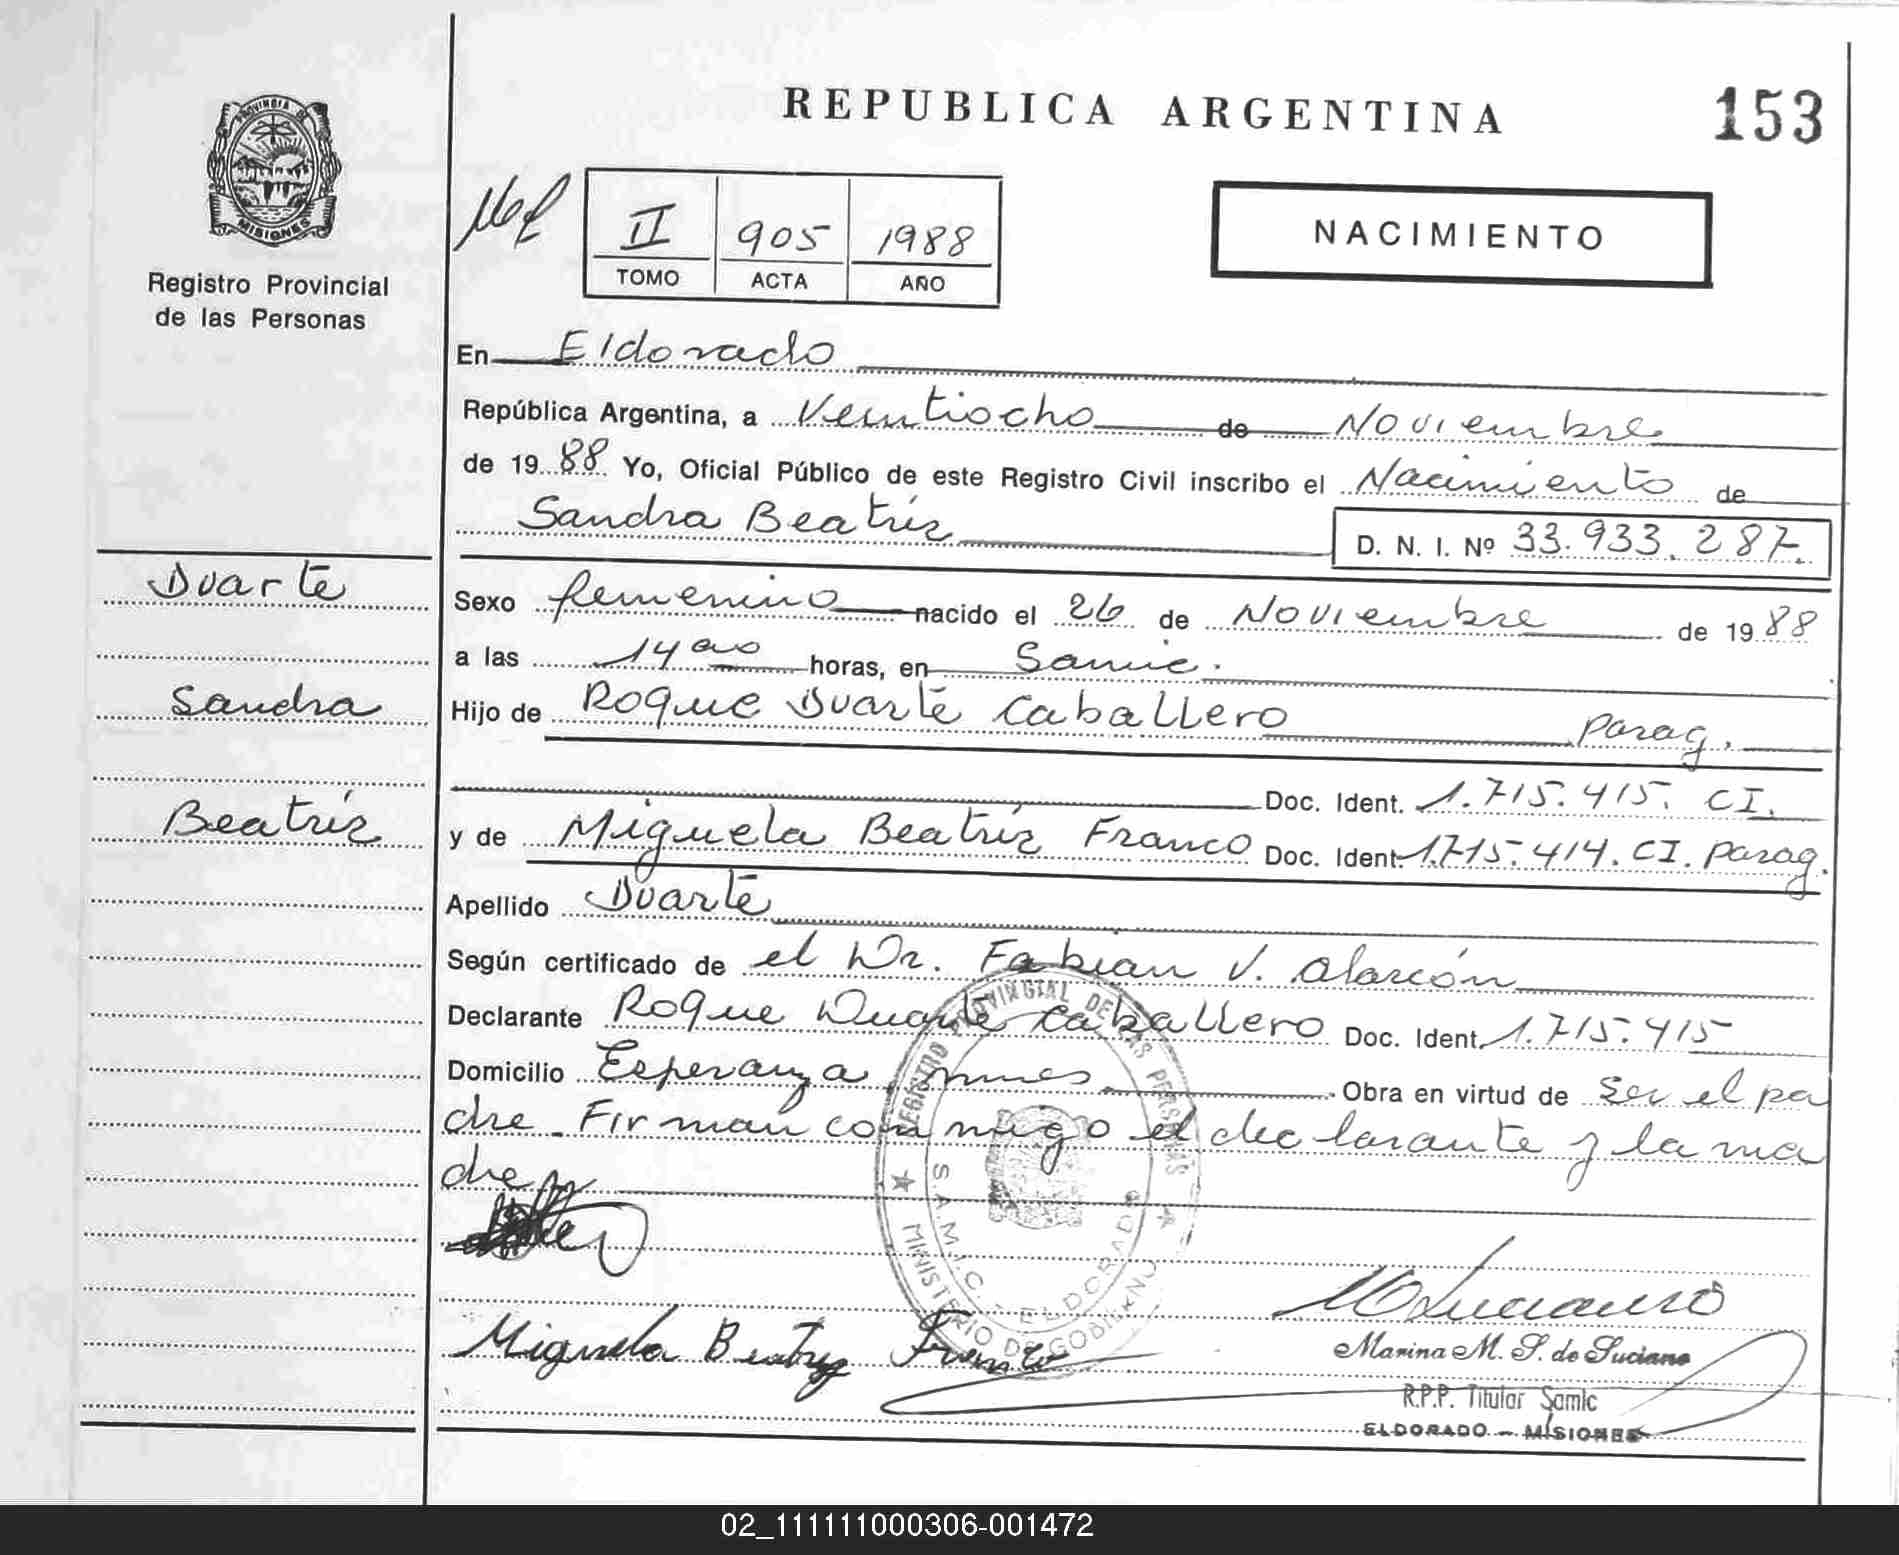 REPUBLICA ARGENTINA
153
PROVINCIA DE
MISIONES
Registro Provincial
de las Personas
II 905 1988
TOMO ACTA AÑO
NACIMIENTO
En Eldorado
República Argentina, a Veintiocho de Noviembre
de 1988 Yo, Oficial Público de este Registro Civil inscribo el Nacimiento de
Sandra Beatriz
D. N. I. Nº 33.933.287.
Duarte
Sandra
Beatriz
Sexo femenino nacido el 26 de Noviembre de 1988
a las 14 horas, en Samic.
Hijo de Roque Duarte Caballero Parag.
Doc. Ident. 1.715.415. CI.
y de Miguela Beatriz Franco Doc. Ident. 1.715.414. CI. Parag.
Apellido Duarte
Según certificado de el Dr. Fabian V. Alarcón
Declarante Roque Duarte Caballero Doc. Ident. 1.715.415
Domicilio Esperanza, mnes Obra en virtud de Ser el pa
dre. Firman conmigo el declarante y la ma
dre
REGISTRO PROVINCIAL DE LAS PERSONAS
MINISTERIO DE GOBIERNO
S.A.M.I.C. - ELDORADO
Miguela Beatriz Franco
Marina M. S. de Luciano
R.P.P. Titular Samic
ELDORADO - MISIONES
02_111111000306-001472